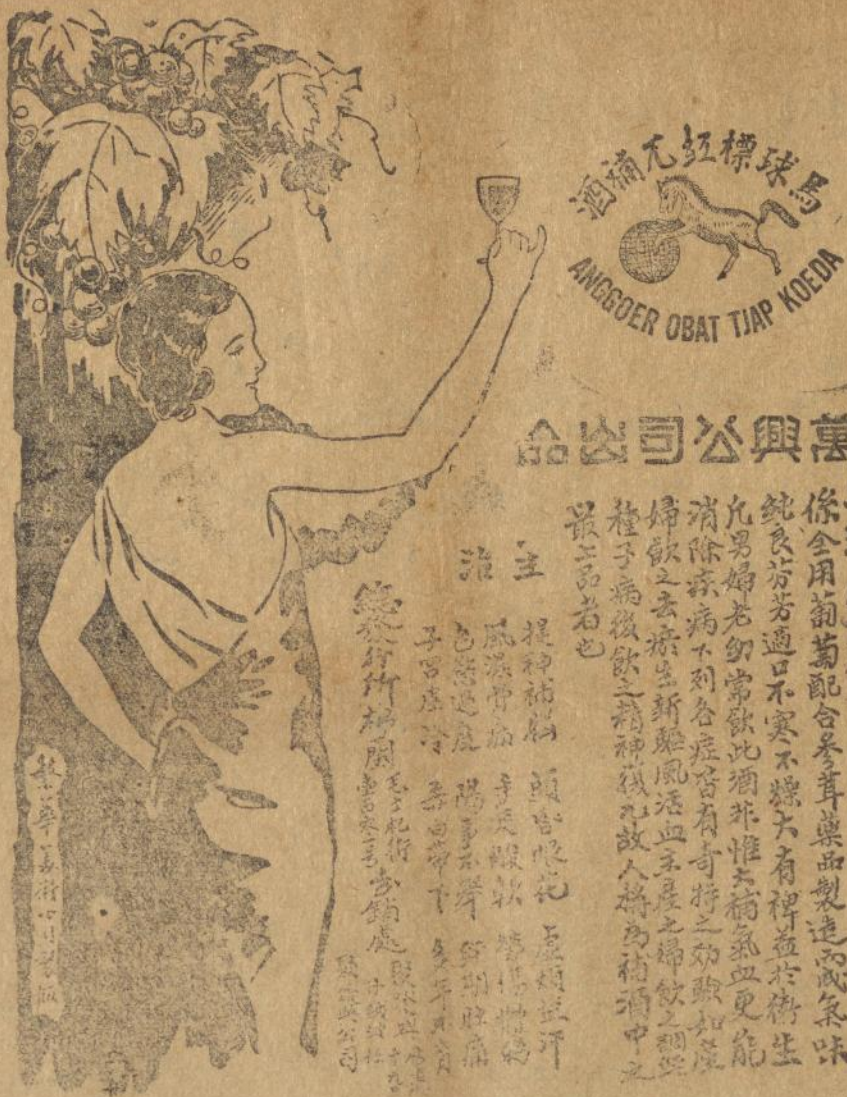 馬球標紅補酒
ANGGOER OBAT TJAP KOEDA
萬興公司出品
係全用葡萄配合參茸藥品製造而成氣味
純良芬芳適口不寒不燥大有裨益於衛生
凡男婦老幼常飲此酒非惟大補氣血更能
消除疾病下列各症皆有奇特之効驗如產
婦飲之去瘀生新驅風活血未產之婦飲之調經
種子病後飲之精神復元故人稱為補酒中之
最上品者也
主治
提神補腦 頭暈眼花 虛煩盜汗
風濕骨痛 手足酸軟
色慾過度 陽事不舉 經期肚痛
子宮虛冷 赤白帶下
總發行所 分銷處
公司
繁華美術公司製版